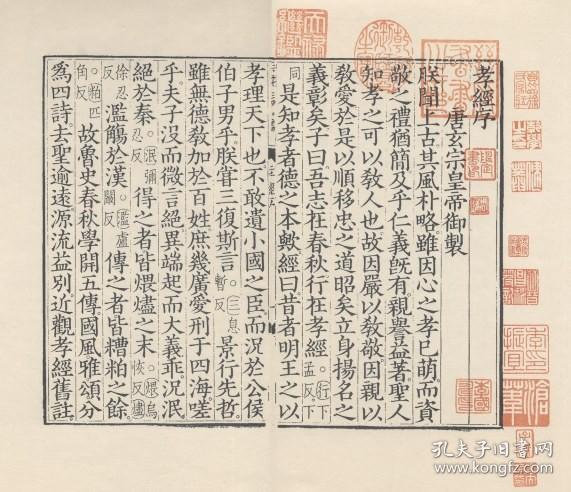 孝經序
唐玄宗皇帝御製
朕聞上古其風朴略雖因心之孝已萌而資
敬之禮猶簡及乎仁義旣有親譽益著聖人
知孝之可以教人也故因嚴以教敬因親以
教愛於是以順移忠之道昭矣立身揚名之
義彰矣子曰吾志在春秋行在孝經行下孟反下
同是知孝者德之本歟經曰昔者明王之以
孝理天下也不敢遺小國之臣而況於公侯
伯子男乎朕甞三復斯言三息暫反景行先哲
雖無德教加於百姓庶幾廣愛刑于四海嗟
乎夫子沒而微言絕異端起而大義乖況泯
絕於秦泯彌忍反得之者皆煨燼之末煨烏恢反燼
徐忍反濫觴於漢濫盧闞反傳之者皆糟粕之餘
粕匹角反故魯史春秋學開五傳國風雅頌分
爲四詩去聖逾遠源流益別近觀孝經舊註
孔夫子旧书网
www.kongfz.com